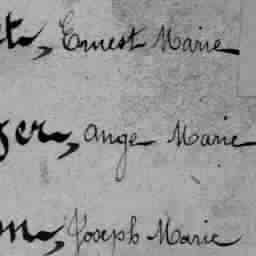 et, Ernest Marie
ger, Ange Marie
on, Joseph Marie